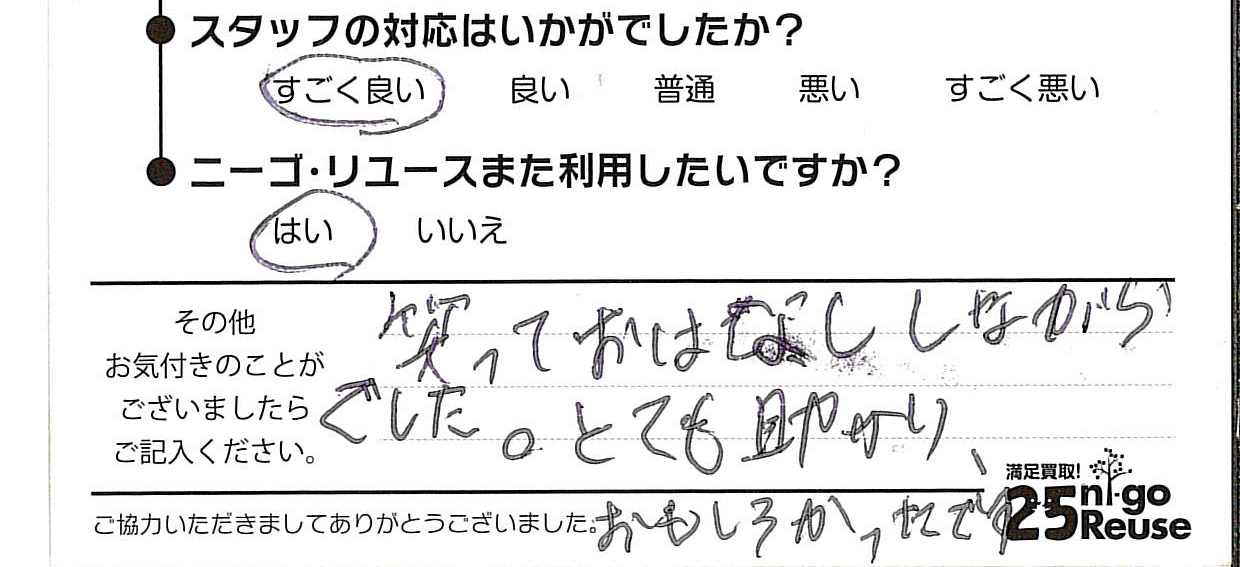 スタッフの対応はいかがでしたか？
すごく良い 良い 普通 悪い すごく悪い
ニーゴ・リユースまた利用したいですか？
はい いいえ
その他
お気付きのことが
ございましたら
ご記入ください。
笑っておはなししながら
でした。とても助かり、
おもしろかったです
ご協力いただきましてありがとうございました。
満足買取!
25 ni-go
Reuse